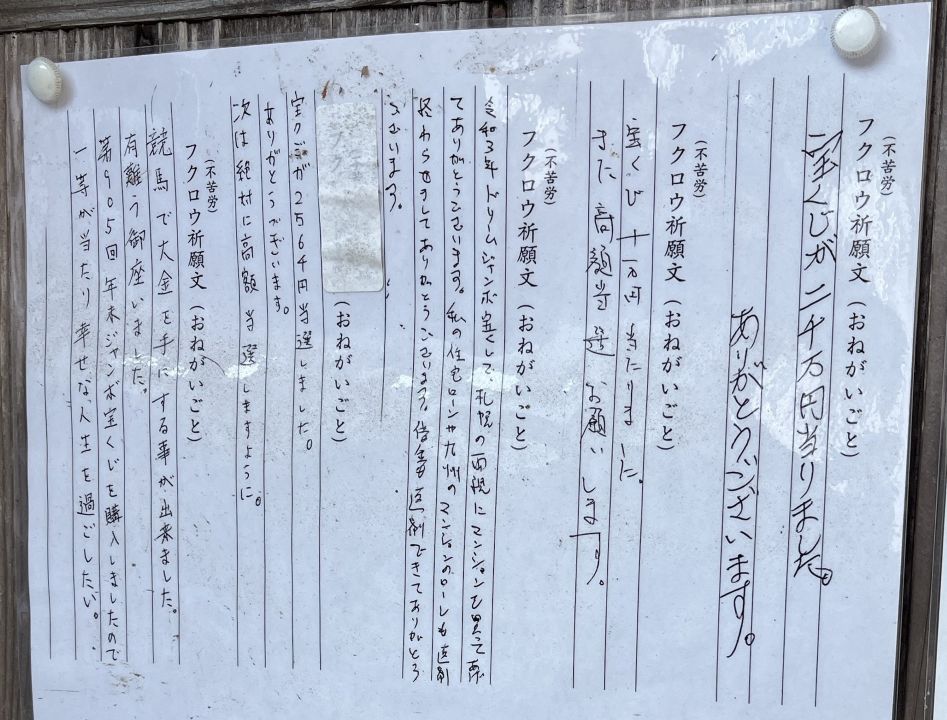 フクロウ祈願文（おねがいごと）
（不苦労）
宝くじが二千万円当りました。
ありがとうございます。
フクロウ祈願文（おねがいごと）
（不苦労）
宝くじ 十万円 当たりました。
また 高額当選 お願い します。
フクロウ祈願文（おねがいごと）
（不苦労）
令和3年ドリームジャンボ宝くじで、札幌の両親にマンションを買って
てありがとうございます。私の住宅ローンや九州のマンションのローンも
終わらせましてありがとうございます。借金できてありがとう
ございます。
（おねがいごと）
宝くじが2564円当選しました。
ありがとうございます。
次は絶対に高額 当選しますように。
フクロウ祈願文（おねがいごと）
（不苦労）
競馬で大金を手にする事が出来ました。
有難う御座いました。
第905回年末ジャンボ宝くじを購入しましたので
一等が当たり幸せな人生を過ごしたい。